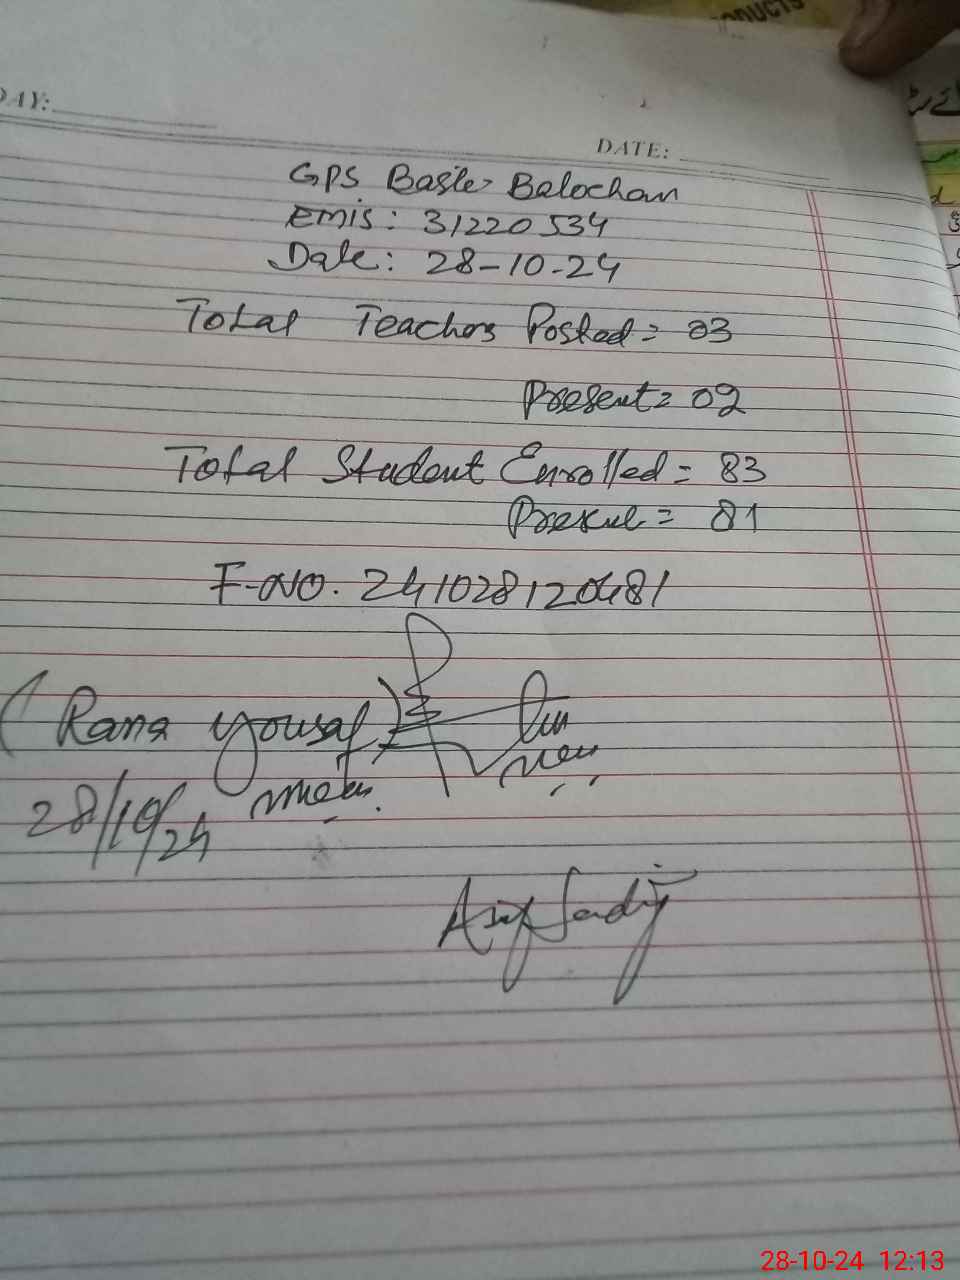 PRODUCTS
DAY:
DATE:
GPS Basti Balochan
Emis: 31220534
Date: 28-10-24
Total Teachers Posted = 03
Present = 02
Total Student Enrolled = 83
Present = 81
F-NO. 241028120481
(Rana Yousaf)
28/10/24
28-10-24 12:13